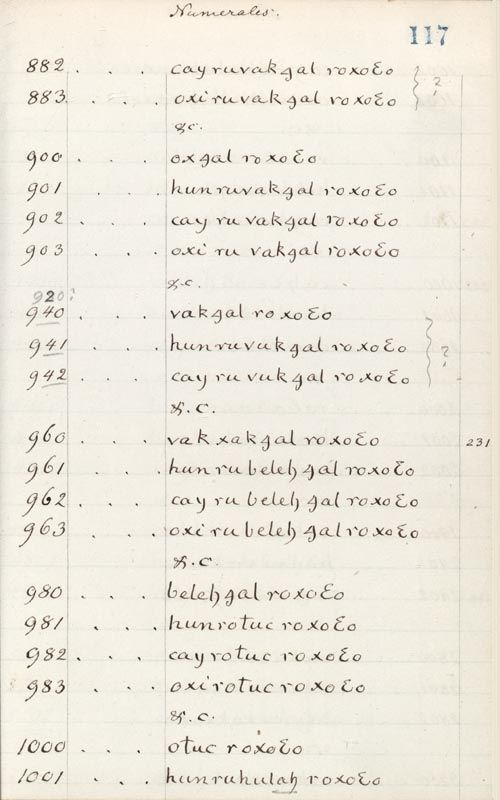 Numerales.
117
882 . . . cay ruvakgal roxoƐo } ?
883 . . . oxi ruvakgal roxoƐo
&c.
900 . . . oxgal roxoƐo
901 . . . hun ruvakgal roxoƐo
902 . . . cay ru vakgal roxoƐo
903 . . . oxi ru vakgal roxoƐo
&c.
920?
940 . . . vakgal roxoƐo
941 . . . hun ruvukgal roxoƐo } ?
942 . . . cay ru vukgal roxoƐo
&.c.
960 . . . vak xakgal roxoƐo 231
961 . . . hun ru beleh gal roxoƐo
962 . . . cay ru beleh gal roxoƐo
963 . . . oxi ru beleh gal roxoƐo
&.c.
980 . . . beleh gal roxoƐo
981 . . . hun rotuc roxoƐo
982 . . . cay rotuc roxoƐo
983 . . . oxi rotuc roxoƐo
&.c.
1000 . . . otuc roxoƐo
1001 . . . hun ruhulah roxoƐo